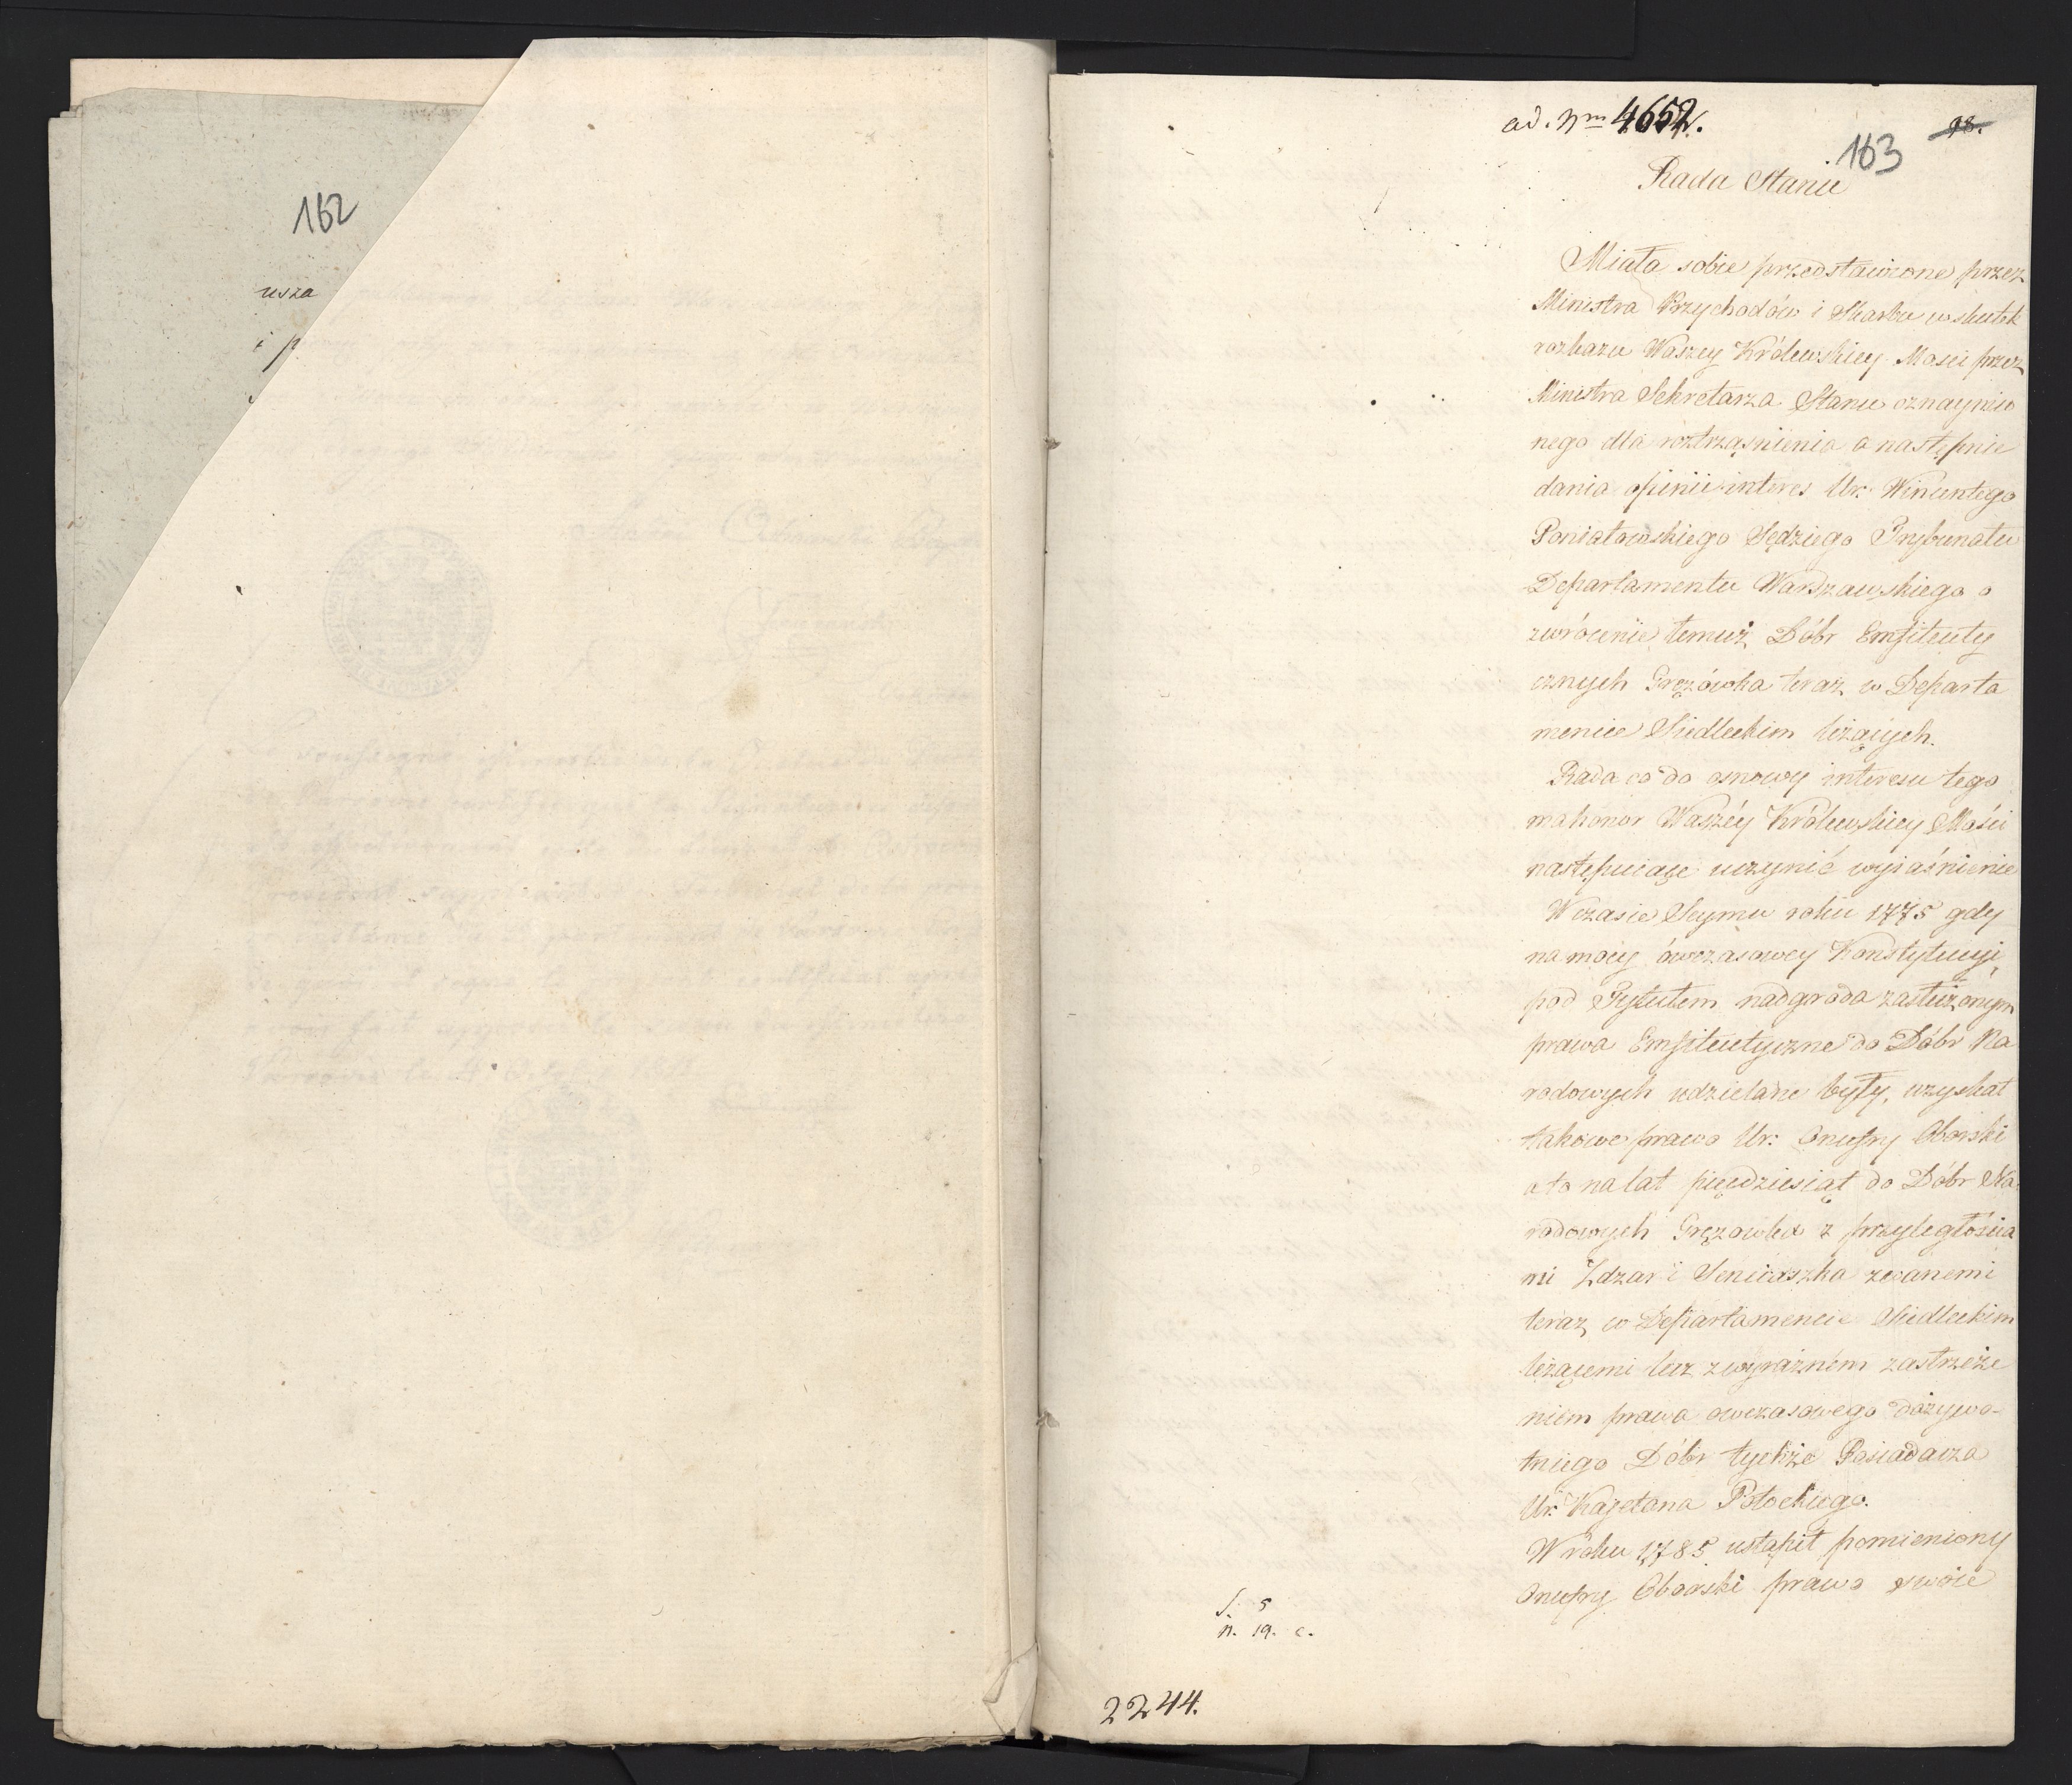 162
usza
i p
ad. Nm 4652.
98.
163
Rada Stanu
Miała sobie przedstawione przez
Ministra Przychodów i Skarbu w skutek
rozkazu Waszey Królewskiey Mosci przez
Ministra Sekretarza Stanu oznaymio
nego dla roztrząsnienia a następnie
dania opinii interes Ur. Wincentego
Poniatowskiego Sędziego Trybunału
Departamentu Warszawskiego o
zwrócenie temuż Dóbr Emfiteuty
cznych Gręzówka teraz w Departa
mencie Siedleckim leżących.
Rada co do osnowy interesu tego
ma honor Waszéy Królewskiey Mości
następuiące uczynić wyiaśnienie
W czasie Seymu roku 1775 gdy
na mocy ówczasowey Konstytucyi,
pod Tytułem nadgroda zasłużonym
prawa Emfiteutyczne do Dóbr Na
rodowych udzielane były, uzyskał
takowe prawo Ur: Onufry Oborski
a to na lat pięćdziesiąt do Dóbr Na
rodowych Gręzowka z przyległościa
mi Zdzar i Sieniaszka zwanemi
teraz w Departamencie Siedleckim
leżącemi lecz z wyraźném zastrzeże
niem prawa owczasowego dożywo-
tniego Dóbr tychże Posiadacza
Ur. Kajetana Potockiego.
W roku 1785 ustąpił pomieniony
Onufry Oborski prawo swoie
S. 5
n. 19. c.
2244.